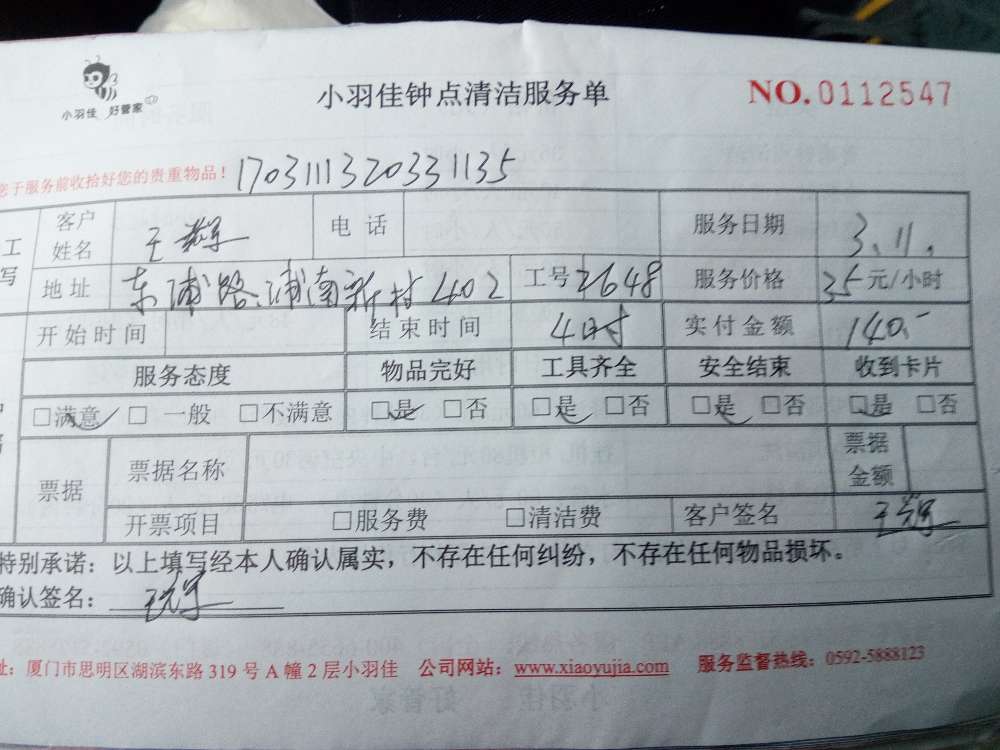 小羽佳 好管家
小羽佳钟点清洁服务单
NO.0112547
您于服务前收拾好您的贵重物品！
1703111320331135
工
写
客户姓名 王 电话 服务日期 3.11.
地址 东浦路浦南新村402 工号 2648 服务价格 35元/小时
开始时间 结束时间 4时 实付金额 140.-
服务态度 物品完好 工具齐全 安全结束 收到卡片
□满意✓ □一般 □不满意 □是✓ □否 □是✓ □否 □是✓ □否 □是✓ □否
票据 票据名称 票据金额
开票项目 □服务费 □清洁费 客户签名 王
特别承诺：以上填写经本人确认属实，不存在任何纠纷，不存在任何物品损坏。
确认签名：
址：厦门市思明区湖滨东路319号A幢2层小羽佳 公司网站：www.xiaoyujia.com 服务监督热线：0592-5888123